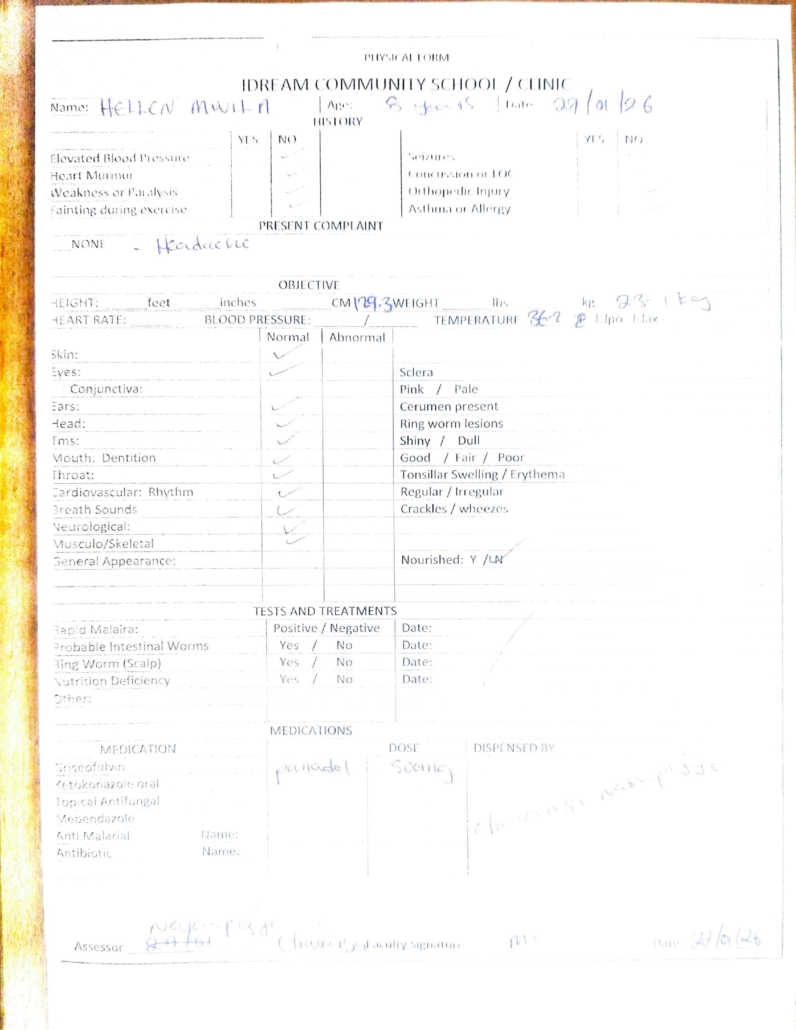 PHYSICAL FORM
IDREAM COMMUNITY SCHOOL / CLINIC
Name: HELLEN MWILA Age: 8 years Date 27/01/26
HISTORY
YES NO YES NO
Elevated Blood Pressure Seizures
Heart Murmur Concussion or LOC
Weakness or Paralysis Orthopedic Injury
Fainting during exercise Asthma or Allergy
PRESENT COMPLAINT
NONE - Headache
OBJECTIVE
HEIGHT: feet inches CM 129.3 WEIGHT lbs kg 23.1 kg
HEART RATE: BLOOD PRESSURE: / TEMPERATURE 36.2
Normal Abnormal
Skin: ✓
Eyes: ✓ Sclera
Conjunctiva: Pink / Pale
Ears: ✓ Cerumen present
Head: ✓ Ring worm lesions
Tms: ✓ Shiny / Dull
Mouth: Dentition ✓ Good / Fair / Poor
Throat: ✓ Tonsillar Swelling / Erythema
Cardiovascular: Rhythm ✓ Regular / Irregular
Breath Sounds ✓ Crackles / wheezes
Neurological: ✓
Musculo/Skeletal ✓
General Appearance: Nourished: Y /UN
TESTS AND TREATMENTS
Rapid Malaira: Positive / Negative Date:
Probable Intestinal Worms Yes / No Date:
Ring Worm (Scalp) Yes / No Date:
Nutrition Deficiency Yes / No Date:
Other:
MEDICATIONS
MEDICATION DOSE DISPENSED BY
Griseofulvin panadol 500mg
Ketokonazole oral
Topical Antifungal
Mebendazole
Anti Malarial Name:
Antibiotic Name:
Assessor Faculty Signature Date 27/01/26